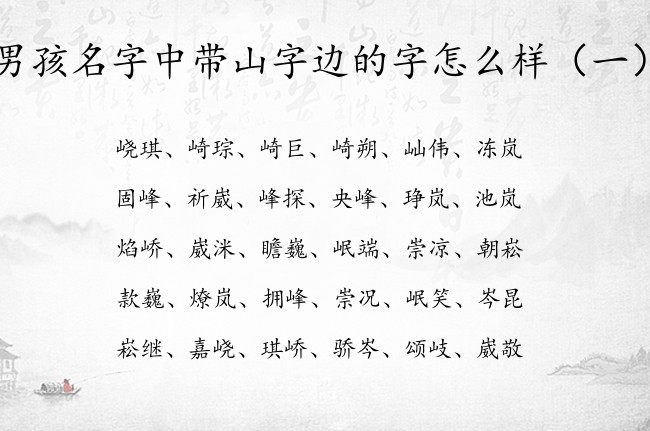 男孩名字中带山字边的字怎么样（一）
峣琪、崎琮、崎巨、崎朔、屾伟、冻岚
固峰、祈崴、峰探、央峰、琤岚、池岚
焰峤、崴洣、瞻巍、岷端、崇凉、朝崧
款巍、燎岚、拥峰、崇况、岷笑、岑昆
崧继、嘉峣、琪峤、骄岑、颂岐、崴敬